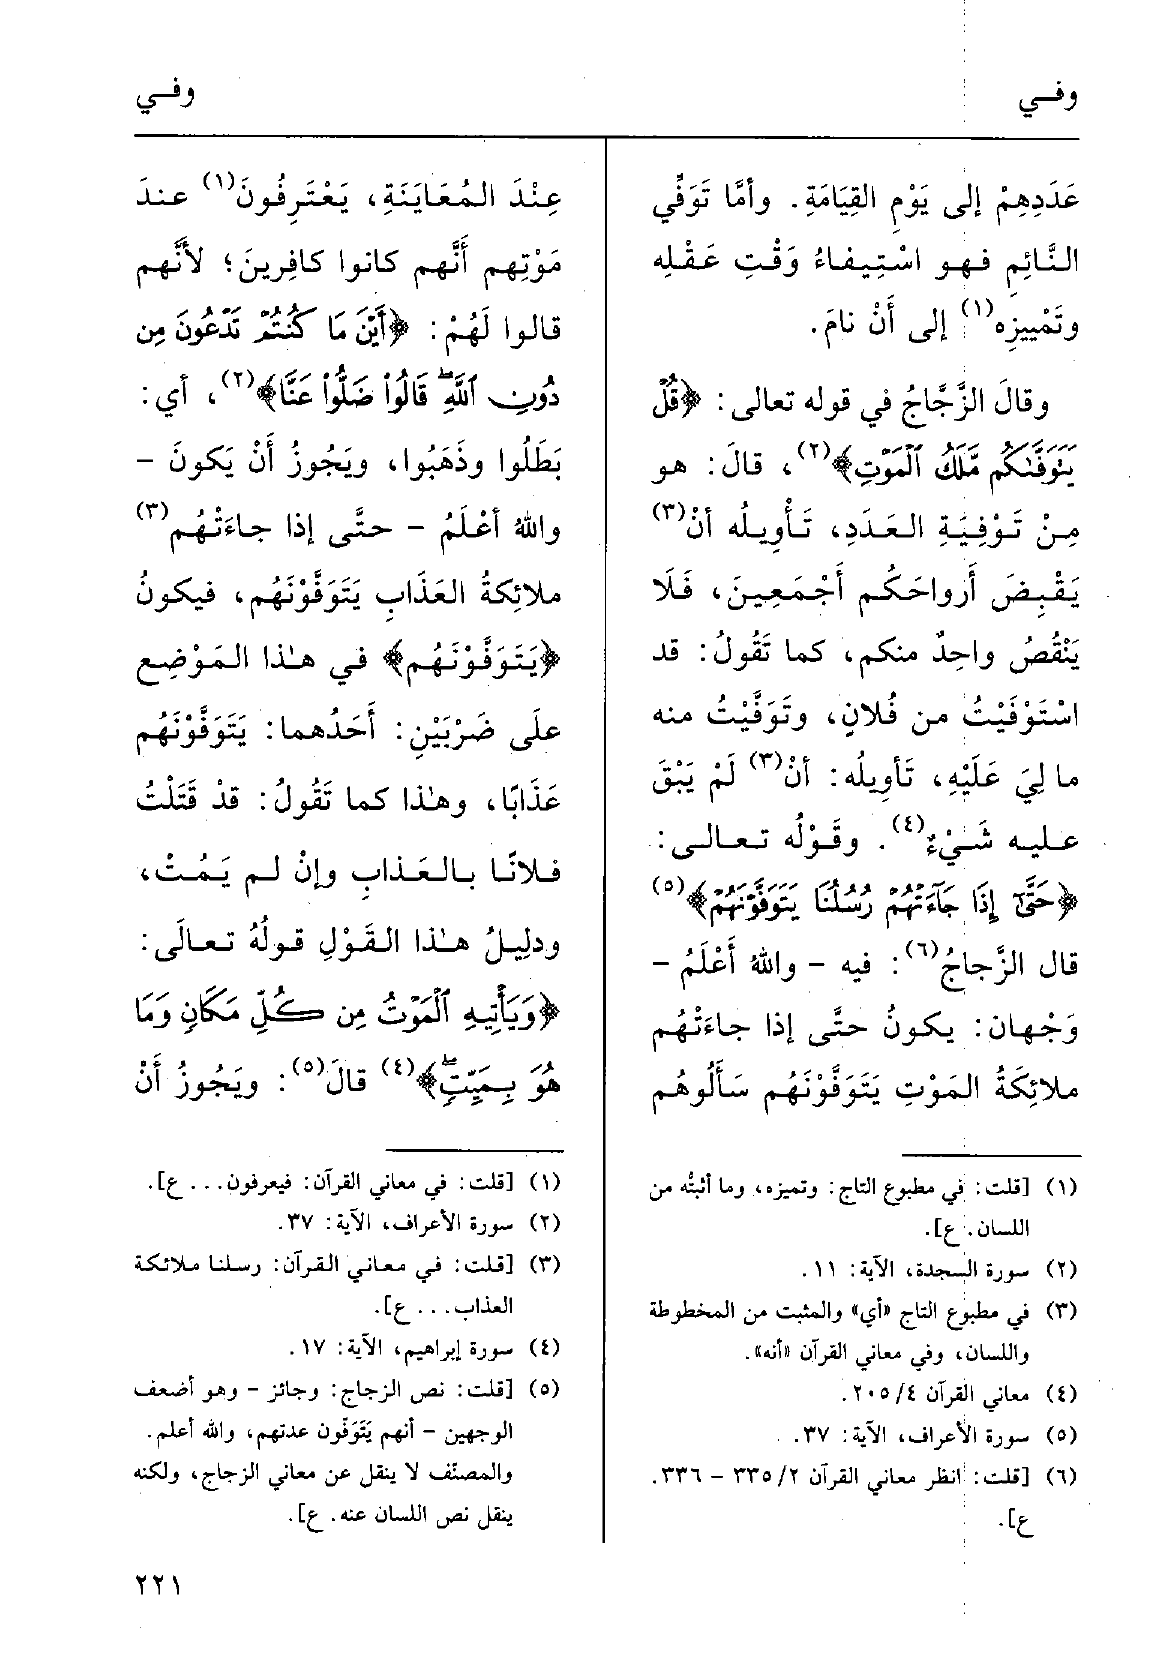 وفي
وفي
عَدَدِهِمْ إلى يَوْمِ القِيَامَةِ. وأمَّا تَوَفِّي
النَّائِمِ فهو اسْتِيفاءُ وَقْتِ عَقْلِه
وتَمْيِيزِه(١) إلى أَنْ نامَ.
وقالَ الزَّجَّاجُ في قوله تعالى: ﴿قُلْ
يَتَوَفَّىٰكُم مَّلَكُ ٱلْمَوْتِ﴾(٢)، قالَ: هو
مِنْ تَوْفِيَةِ العَدَدِ، تَأْوِيلُه أنْ(٣)
يَقْبِضَ أَرواحَكُم أَجْمَعِينَ، فَلَا
يَنْقُصُ واحِدٌ منكم، كما تَقُولُ: قد
اسْتَوْفَيْتُ من فُلانٍ، وتَوَفَّيْتُ منه
ما لِيَ عَلَيْهِ، تَأويلُه: أنْ(٣) لَمْ يَبْقَ
عليه شَيْءٌ(٤). وقَوْلُه تعالى:
﴿حَتَّىٰٓ إِذَا جَآءَتْهُمْ رُسُلُنَا يَتَوَفَّوْنَهُمْ﴾(٥)
قال الزَّجاجُ(٦): فيه – واللهُ أَعْلَمُ –
وَجْهان: يكونُ حتَّى إذا جاءَتْهُم
ملائِكَةُ المَوْتِ يَتَوَفَّوْنَهُم سَأَلُوهُم
(١) [قلت: في مطبوع التاج: وتميزه، وما أثبتُّه من
اللسان. ع].
(٢) سورة السجدة، الآية: ١١.
(٣) في مطبوع التاج «أي» والمثبت من المخطوطة
واللسان، وفي معاني القرآن «أنه».
(٤) معاني القرآن ٢٠٥/٤.
(٥) سورة الأعراف، الآية: ٣٧.
(٦) [قلت: انظر معاني القرآن ٣٣٥/٢ – ٣٣٦.
ع].
عِنْدَ المُعَايَنَةِ، يَعْتَرِفُونَ(١) عندَ
مَوْتِهِم أَنَّهم كانوا كافِرِينَ؛ لأنَّهم
قالوا لَهُمْ: ﴿أَيْنَ مَا كُنتُمْ تَدْعُونَ مِن
دُونِ ٱللَّهِۖ قَالُوا۟ ضَلُّوا۟ عَنَّا﴾(٢)، أي:
بَطَلُوا وذَهَبُوا، ويَجُوزُ أَنْ يَكونَ –
واللهُ أَعْلَمُ – حتَّى إذا جاءَتْهُم(٣)
ملائِكةُ العَذَابِ يَتَوَفَّوْنَهُم، فيكونُ
﴿يَتَوَفَّوْنَهُم﴾ في هٰذا المَوْضِعِ
علَى ضَرْبَيْنِ: أَحَدُهما: يَتَوَفَّوْنَهُم
عَذَابًا، وهٰذا كما تَقُولُ: قدْ قَتَلْتُ
فلانًا بالعَذابِ وإنْ لم يَمُتْ،
ودلِيلُ هٰذا القَوْلِ قولُهُ تعالَى:
﴿وَيَأْتِيهِ ٱلْمَوْتُ مِن كُلِّ مَكَانٍ وَمَا
هُوَ بِمَيِّتٍۖ﴾(٤) قالَ(٥): ويَجُوزُ أَنْ
(١) [قلت: في معاني القرآن: فيعرفون... ع].
(٢) سورة الأعراف، الآية: ٣٧.
(٣) [قلت: في معاني القرآن: رسلنا ملائكة
العذاب... ع].
(٤) سورة إبراهيم، الآية: ١٧.
(٥) [قلت: نص الزجاج: وجائز – وهو أضعف
الوجهين – أنهم يَتَوَفّون عدتهم، والله أعلم.
والمصنّف لا ينقل عن معاني الزجاج، ولكنه
ينقل نص اللسان عنه. ع].
٢٢١